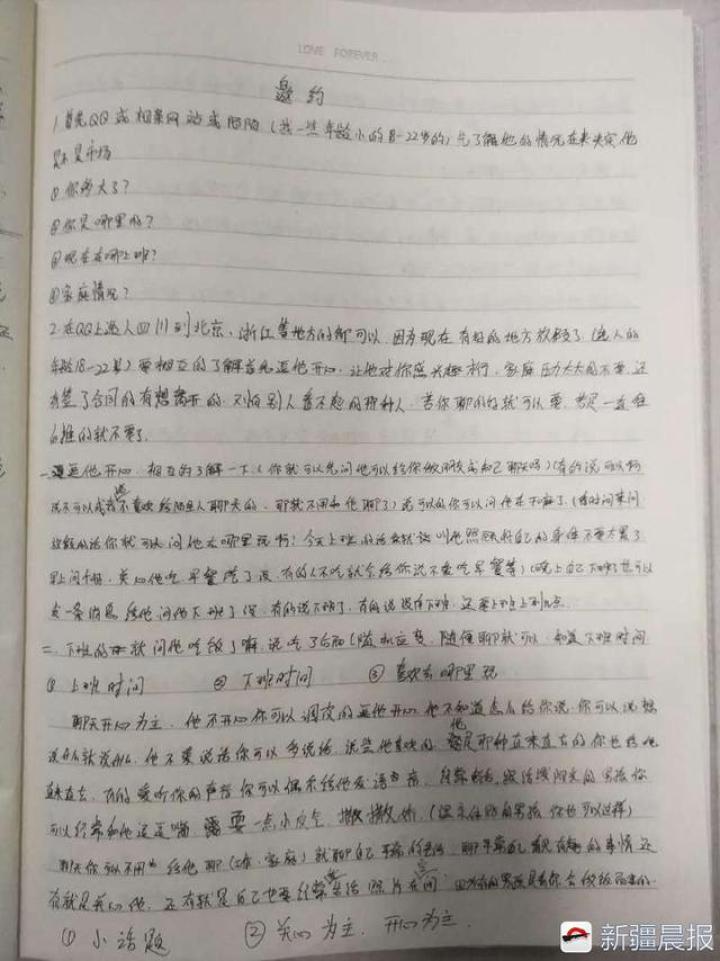 LOVE FOREVER...
邀约
1.首先QQ或相亲网站或陌陌(选一些年龄小的18-22岁的)先了解他的情况在来决定他
是不是市场
①你多大了?
②你是哪里的?
③现在在哪上班?
④家庭情况?
2.在QQ上选人四川到北京、浙江等地方的都可以,因为现在有好的地方放假了(选人的
年龄18-22岁)要相互的了解首先逗他开心,让他对你感兴趣才行,家庭压力太大的不要,还
有签了合同的有想离开的,又怕别人看不起的那种人,若你聊的好就可以要,若是一直往
后推的就不要了.
一逗他开心,相互的了解一下.(你就可以先问他可以给你做朋友或知己聊天吗)(有的说可以有的
说不可以或者不喜欢给陌生人聊天的,那就不用和他聊了)说可以的你可以问他在干嘛了.(有时间来问
放假的话你就可以问他去哪里玩啊!今天上班的话你就说叫他照顾好自己的身体不要太累了
早上问早安,关心他吃早餐吃了没,有的人不吃就会给你说不爱吃早餐等)(晚上自己下班了也可以
发一条消息给他问他下班了没,有的说下班了,有的说没有下班,还要上班上到几点.
二.下班的就问他吃饭了嘛,说吃了后面(随机应变,随便聊就可以,知道下班时间
①上班时间 ②下班时间 ③喜欢去哪里玩
聊天开心为主,他不开心你可以调皮的逗他开心他不知道怎么给你说,你可以说想
说什么就说什么,他不爱说话你可以多说话,说些他喜欢的 他是那种直来直去的你也给他
直来直去,有的爱听你的声音你可以偶尔给他发语音
可以经常和他逗逗嘴 耍一点小脾气,撒撒娇,(温柔的男孩你也可以这样)
聊天你可以不用 给他聊(工作,家庭)就聊自己 聊平常 的事情还
有就是关心他,还有就是自己也要经常 照片 空间
①小话题 ②关心为主,开心为主.
新疆晨报